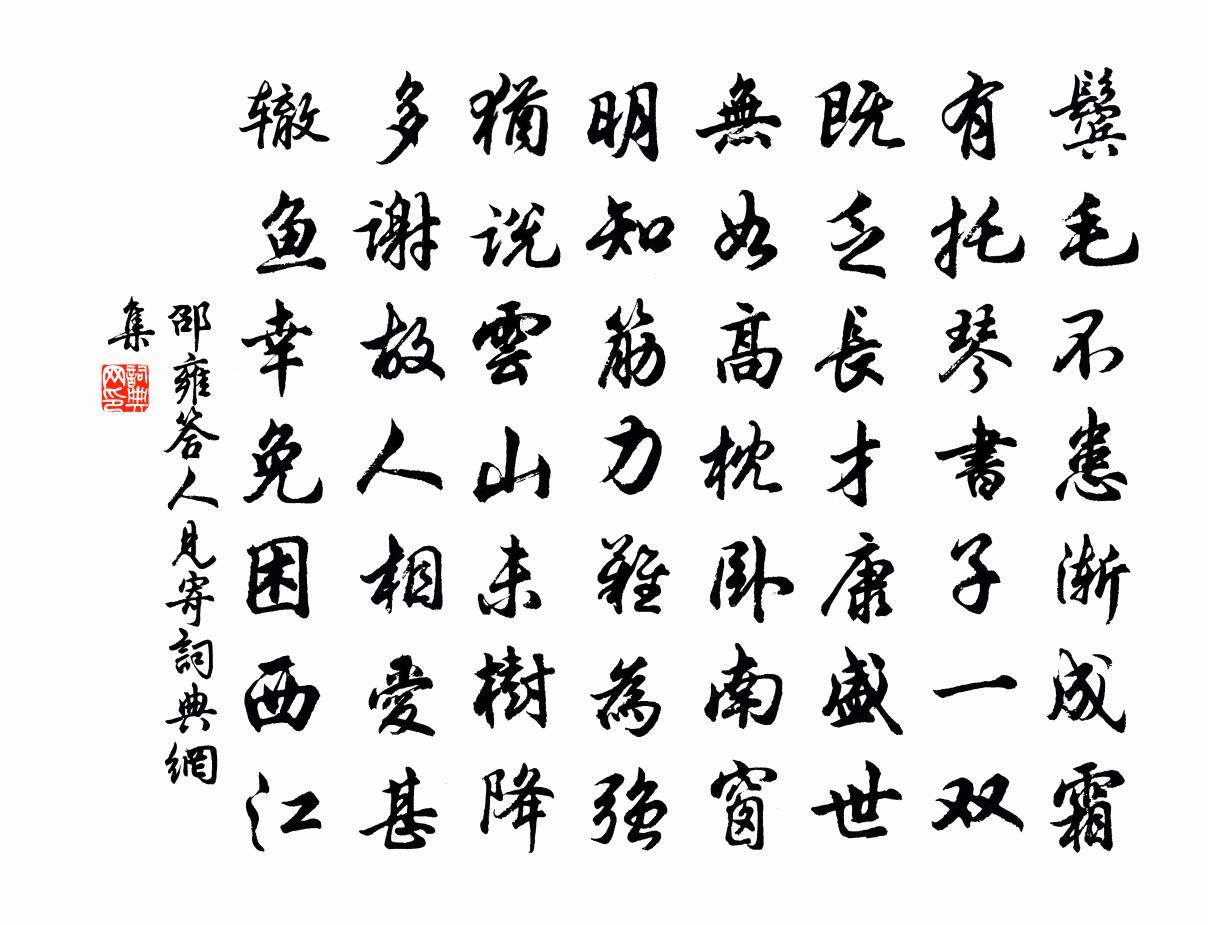 鬓毛不患渐成霜
有托琴書子一双
既乏長才康盛世
無如高枕卧南窗
明知筋力難為強
猶说雲山未樹降
多谢故人相愛甚
辙鱼幸免困西江
邵雍答人見寄詞典網
集
詞典网印